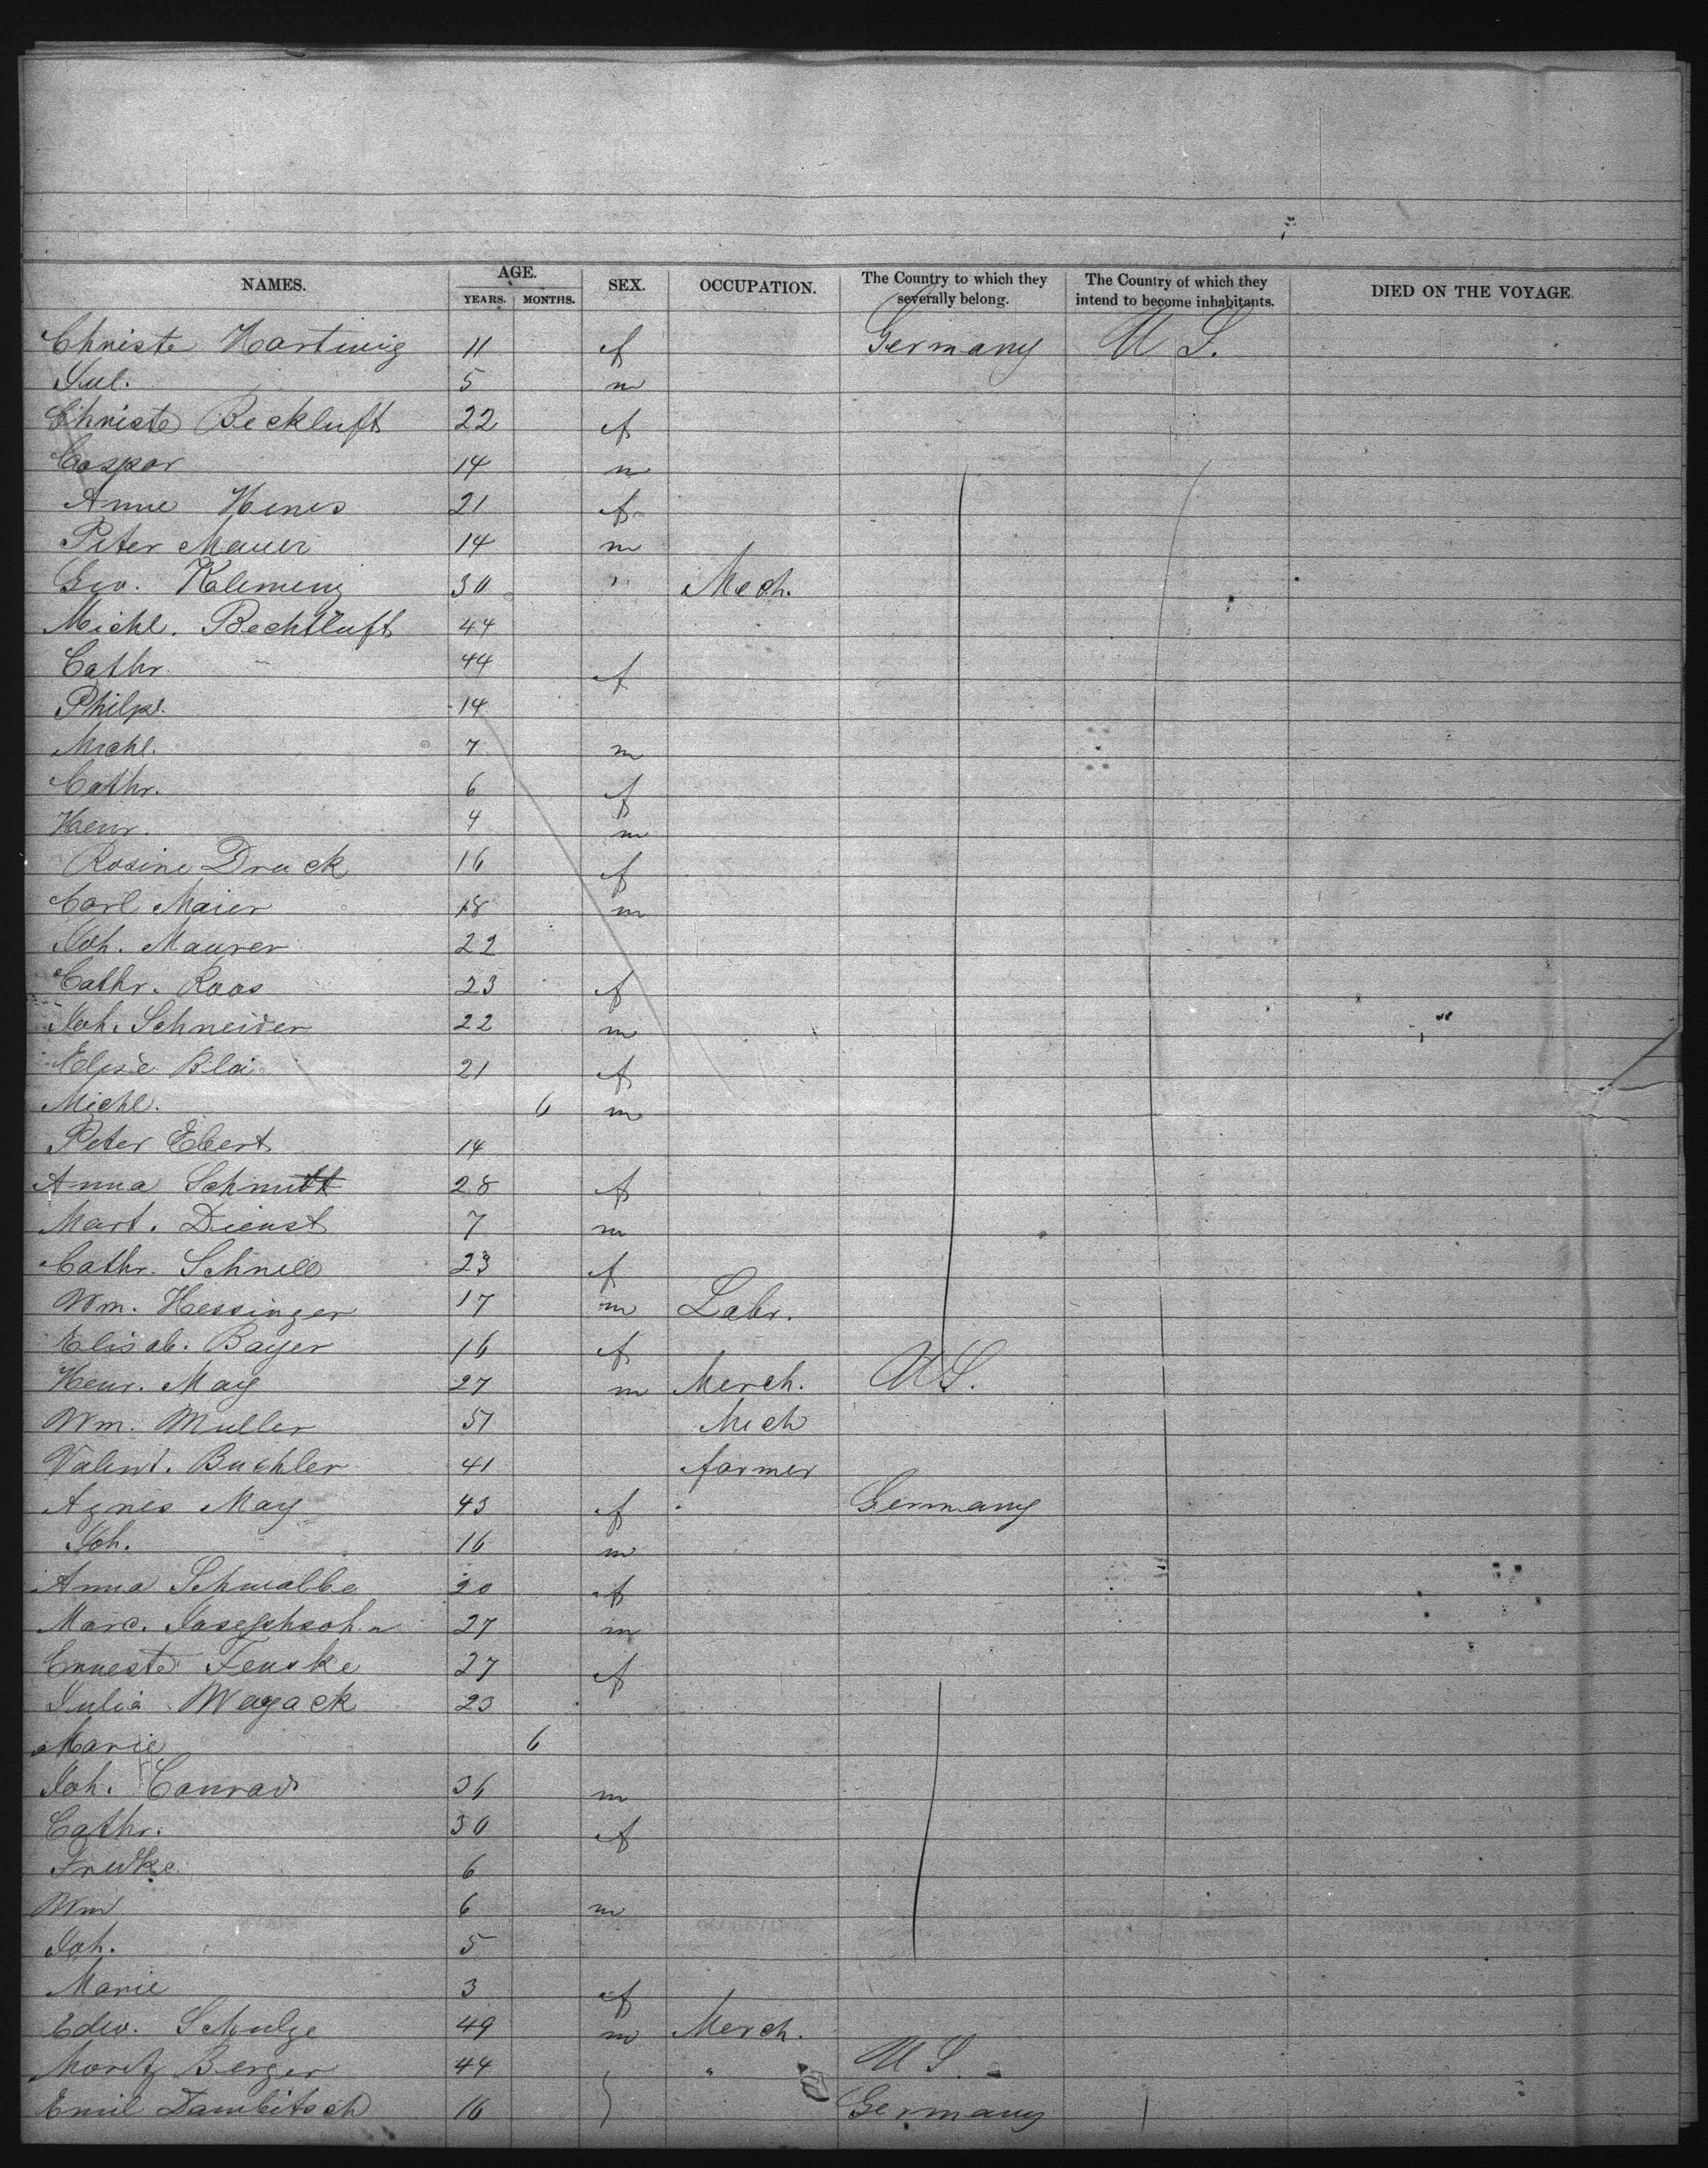 NAMES. AGE. YEARS. MONTHS. SEX. OCCUPATION. The Country to which they severally belong. The Country of which they intend to become inhabitants. DIED ON THE VOYAGE.
Christe Hartwig 11 f Germany U S.
Jul. 5 m
Christe Beckluft 22 f
Caspar 14 m
Anne Henes 21 f
Peter Mauer 14 m
Geo. Klemenz 30 " Mech.
Michl. Bechtluft 44
Cathr. 44 f
Philpl. 14
Michl. 7 m
Cathr. 6 f
Henr. 4 m
Rosine Druck 16 f
Carl Maier 18 m
Joh. Maurer 22
Cathr. Roos 23 f
Joh. Schneider 22 m
Elpse Blai 21 f
Michl. 6 m
Peter Ebert 14
Anna Schmitt 28 f
Mart. Dienst 7 m
Cathr. Schnell 23 f
Wm. Hessinger 17 m Labr.
Elisab. Bayer 16 f
Henr. May 27 m Merch. U S.
Wm. Muller 51 Mech
Valent. Buehler 41 farmer
Agnes May 43 f Germany
Joh. 16 m
Anna Schwalbe 20 f
Marc. Josephsohn 27 m
Erneste Fenske 27 f
Julia Wagack 23
Marie 6
Joh. Conrad 36 m
Cathr. 30 f
Fredke. 6
Wm 6 m
Joh. 5
Marie 3 f
Edw. Schulze 49 m Merch.
Moritz Berger 44 " U S.
Emil Dambitsch 16 Germany